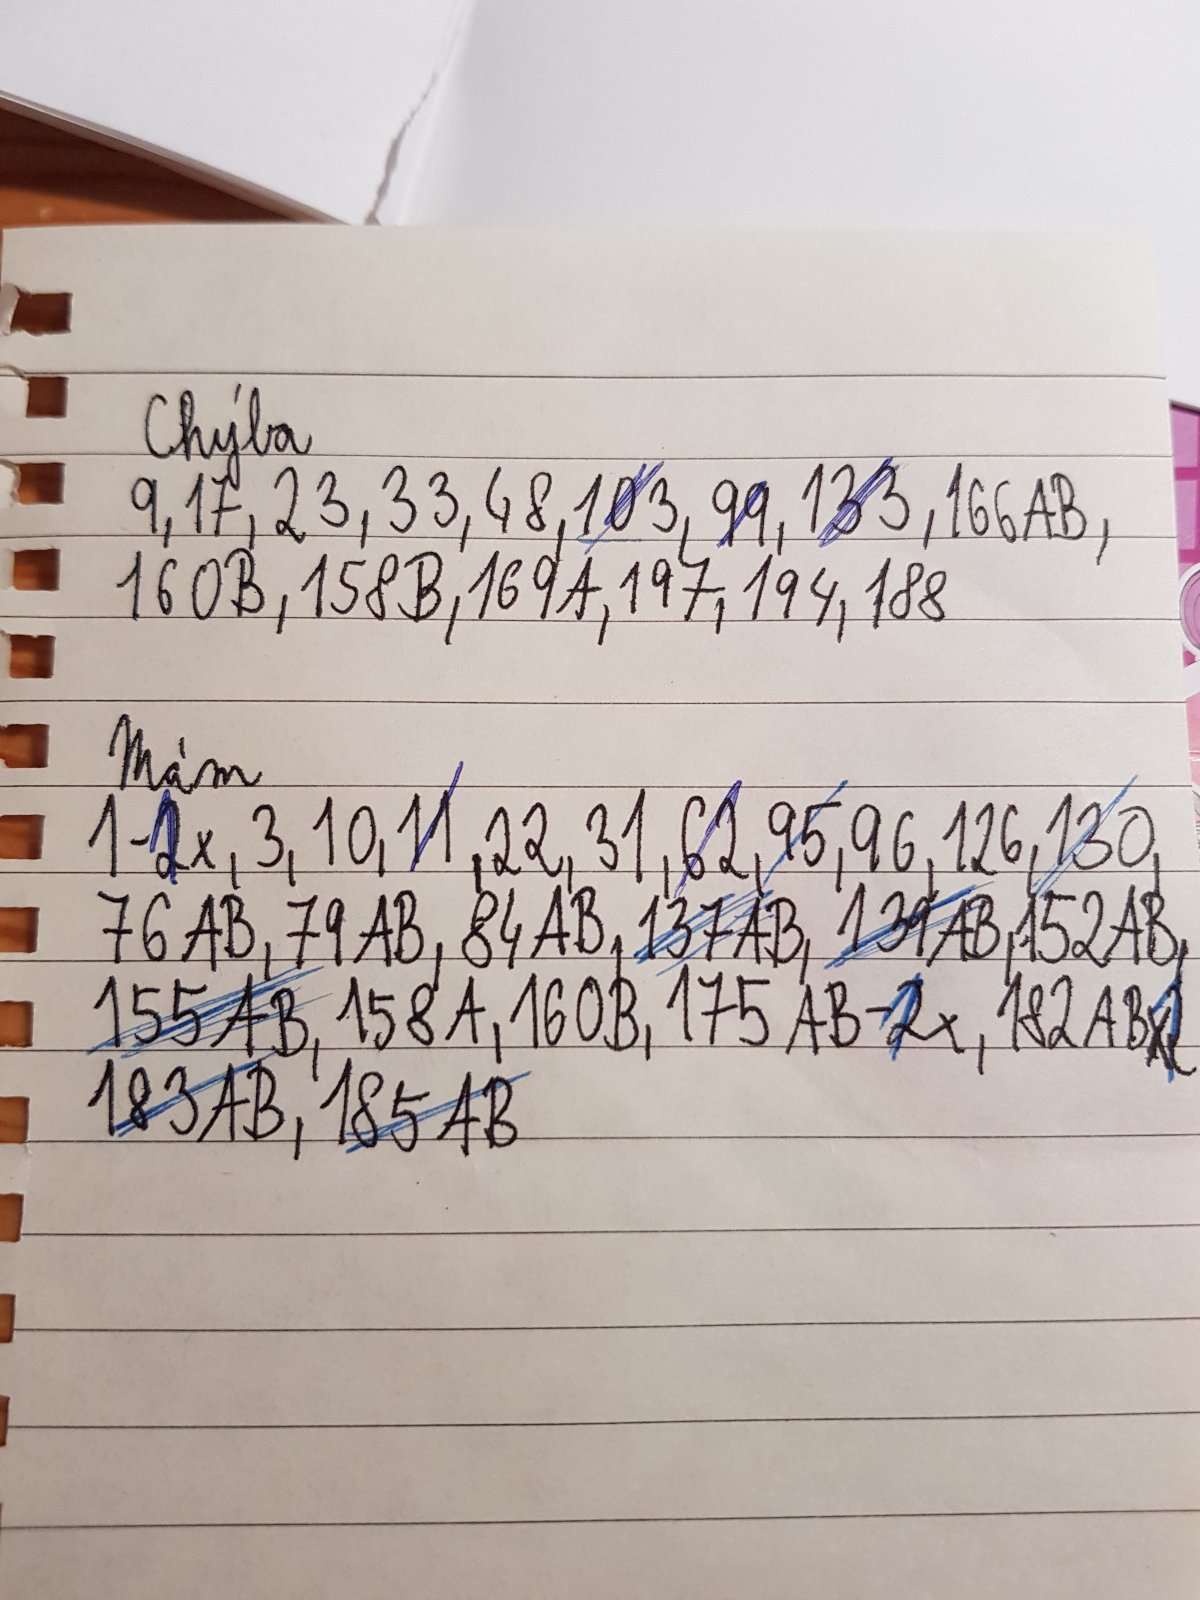 Chýba
9, 17, 23, 33, 48, 103, 99, 133, 166AB,
160B, 158B, 169A, 197, 194, 188
Mám
1-2x, 3, 10, 11, 22, 31, 62, 95, 96, 126, 130,
76AB, 79AB, 84AB, 137AB, 139AB, 152AB,
155AB, 158A, 160B, 175AB-2x, 182ABx2
183AB, 185AB